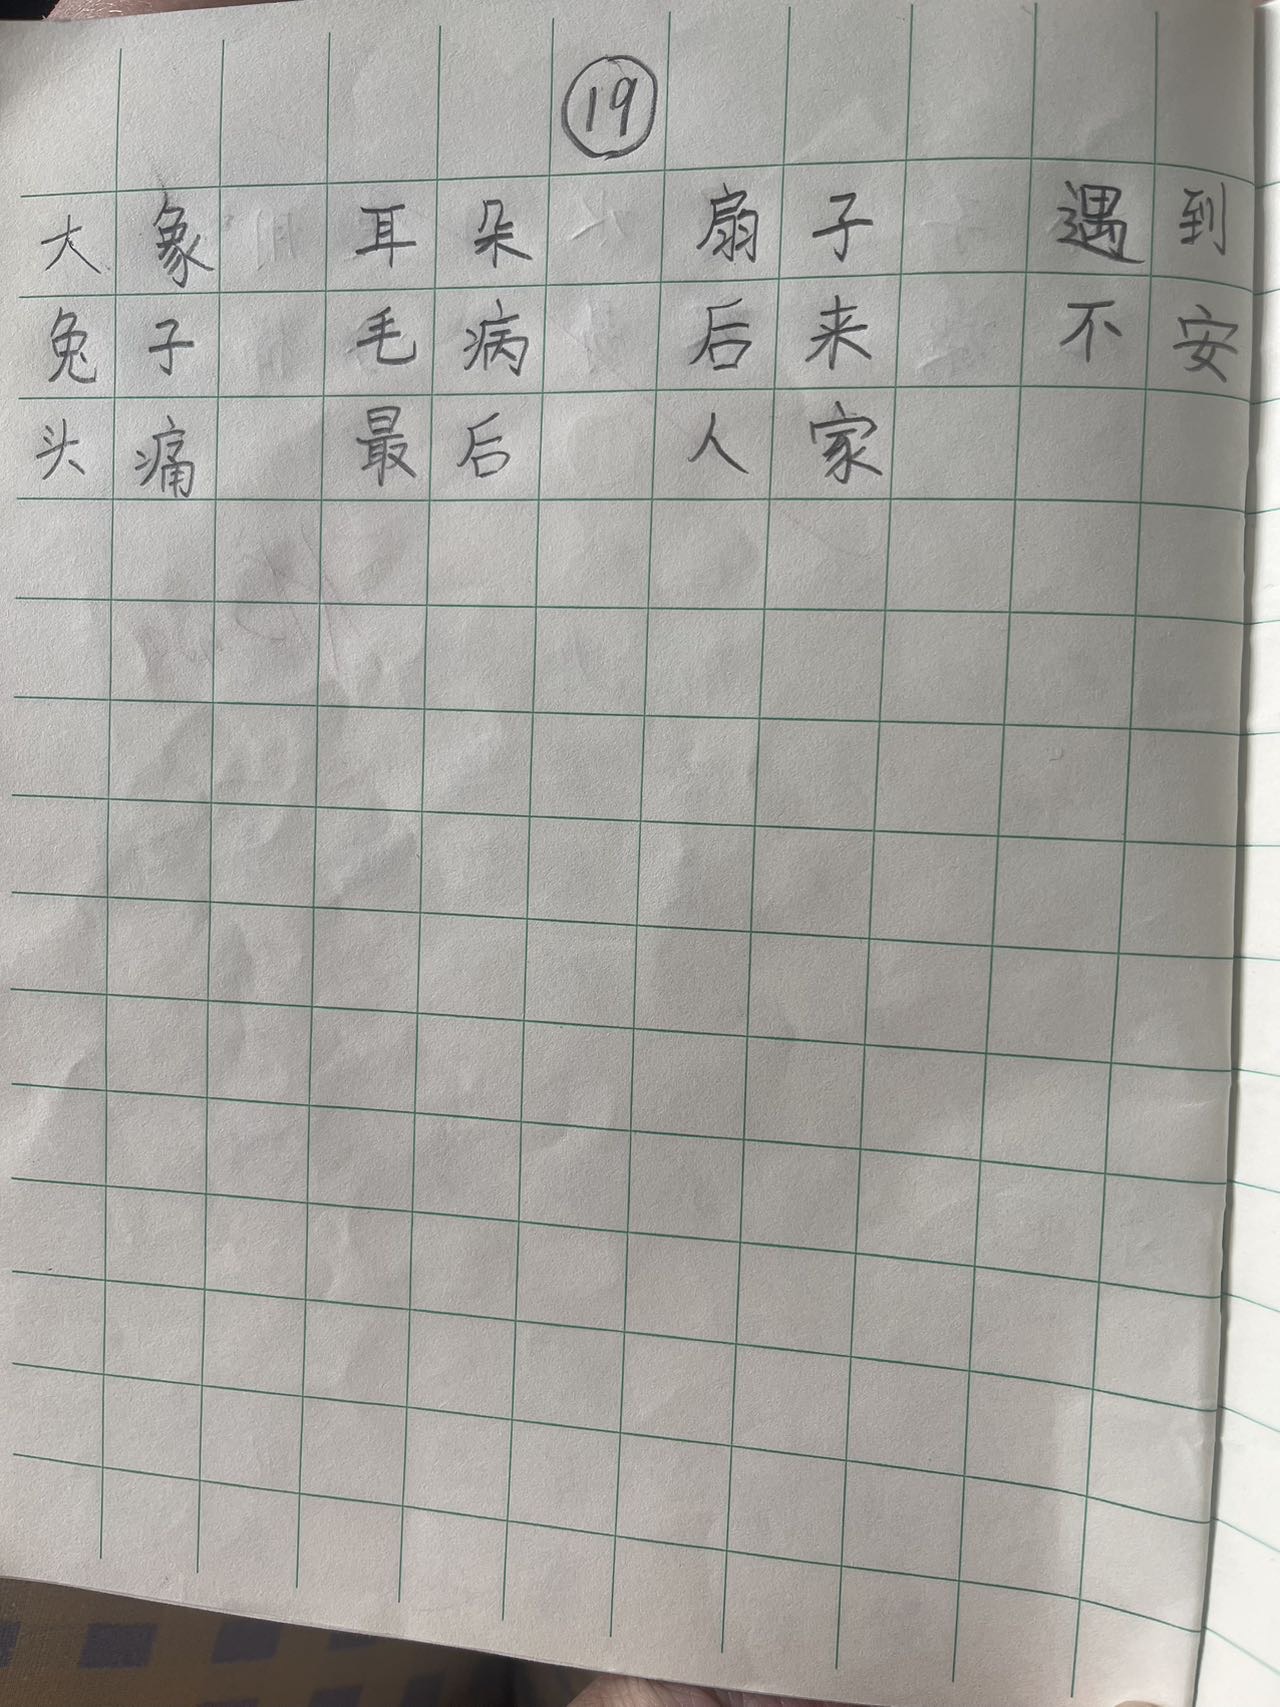 19
大象 耳朵 扇子 遇到
兔子 毛病 后来 不安
头痛 最后 人家